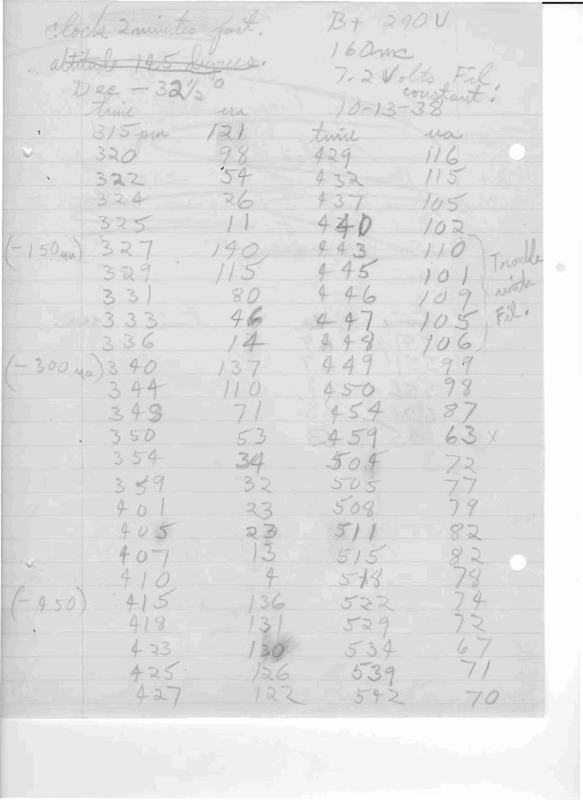 clock 2 minutes fast. B+ 290V
altitude 14.5 degrees. 160mc
Dec -32½° 7.2 Volts Fil.
constant.
10-13-38
time ua time ua
315pm 121 429 116
320 98 432 115
322 54 437 105
324 26 440 102
325 11 443 110
(-150ua) 327 140 445 101
329 115 446 109
331 80 447 105
333 46 448 106
336 14 449 99
Trouble
with
Fil.
(-300ua) 340 137 450 98
344 110 454 87
348 71 459 63 x
350 53 504 72
354 34 505 77
359 32 508 79
401 23 511 82
405 23 515 82
407 13 518 78
410 4 522 74
(-450) 415 136 529 72
418 131 534 67
423 130 539 71
425 126 542 70
427 122